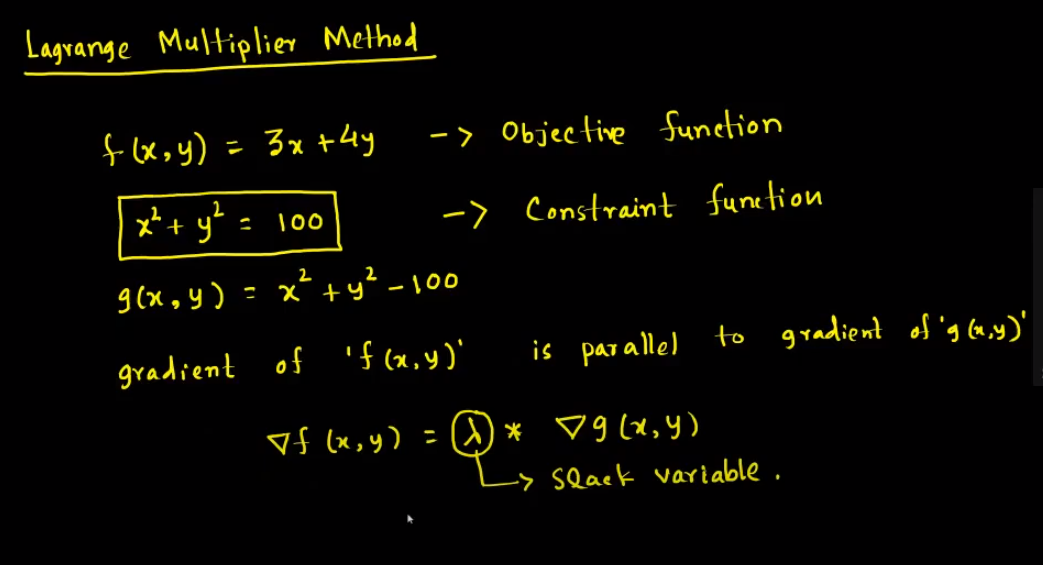 Lagrange Multiplier Method
f(x,y) = 3x + 4y -> Objective function
x² + y² = 100 -> Constraint function
g(x,y) = x² + y² - 100
gradient of 'f(x,y)' is parallel to gradient of 'g(x,y)'
∇f(x,y) = λ * ∇g(x,y)
-> Slack variable.